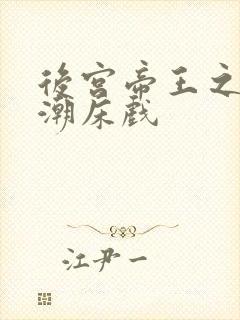 後宮帝王之
潮床戲
江尹一